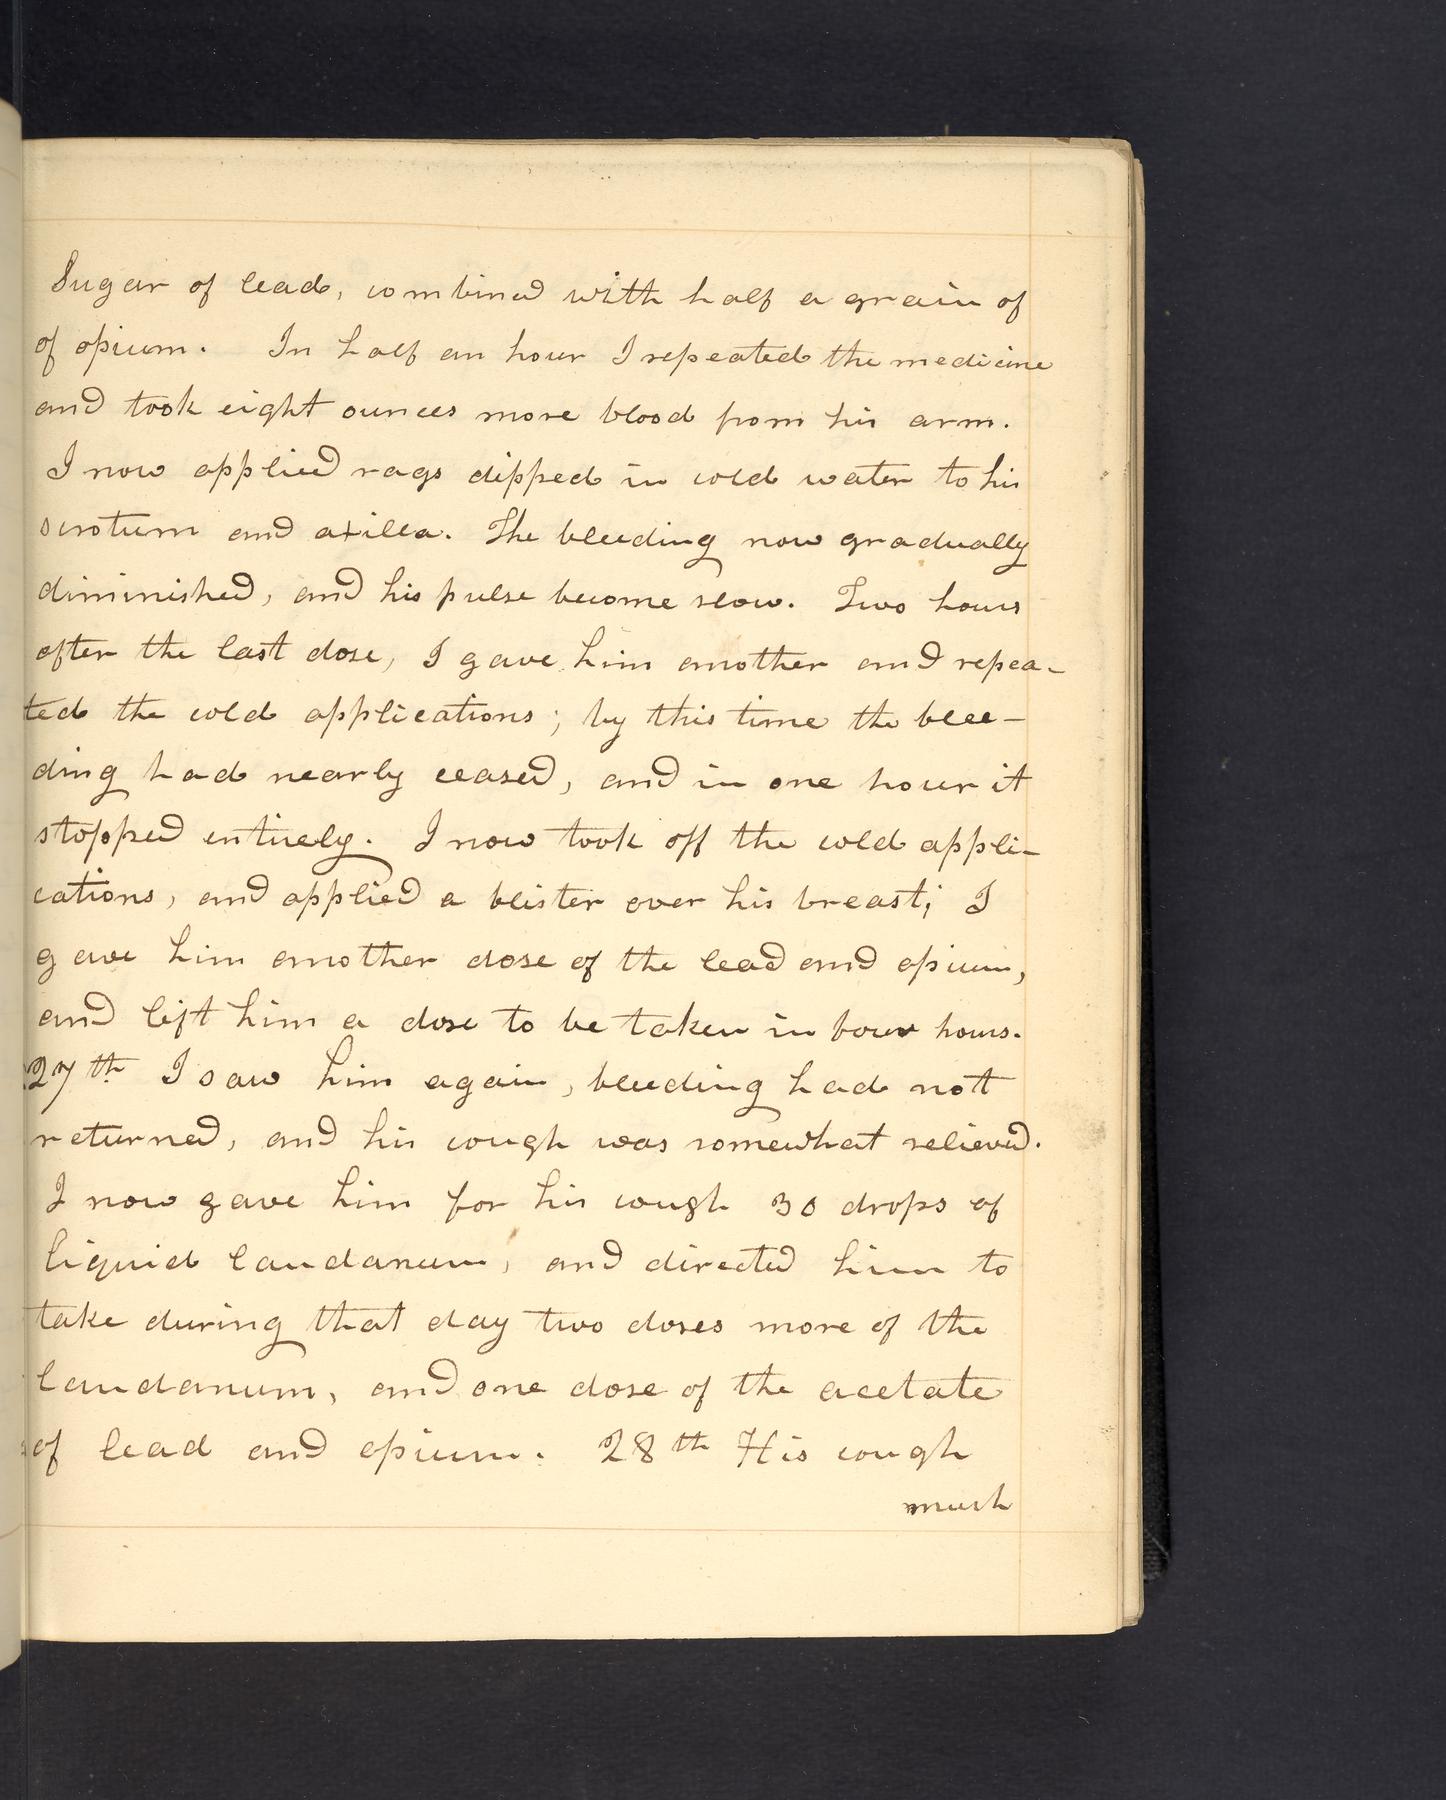 Sugar of lead, combined with half a grain of
of opium. In half an hour I repeated the medicine
and took eight ounces more blood from his arm.
I now applied rags dipped in cold water to his
scrotum and axilla. The bleeding now gradually
diminished, and his pulse become slow. Two hours
after the last dose, I gave him another and repea-
ted the cold applications; by this time the blee-
ding had nearly ceased, and in one hour it
stopped entirely. I now took off the cold appli-
cations, and applied a blister over his breast; I
gave him another dose of the lead and opium,
and left him a dose to be taken in four hours.
27th I saw him again, bleeding had not
returned, and his cough was somewhat relieved.
I now gave him for his cough 30 drops of
liquid laudanum, and directed him to
take during that day two doses more of the
laudanum, and one dose of the acetate
of lead and opium. 28th His cough
much